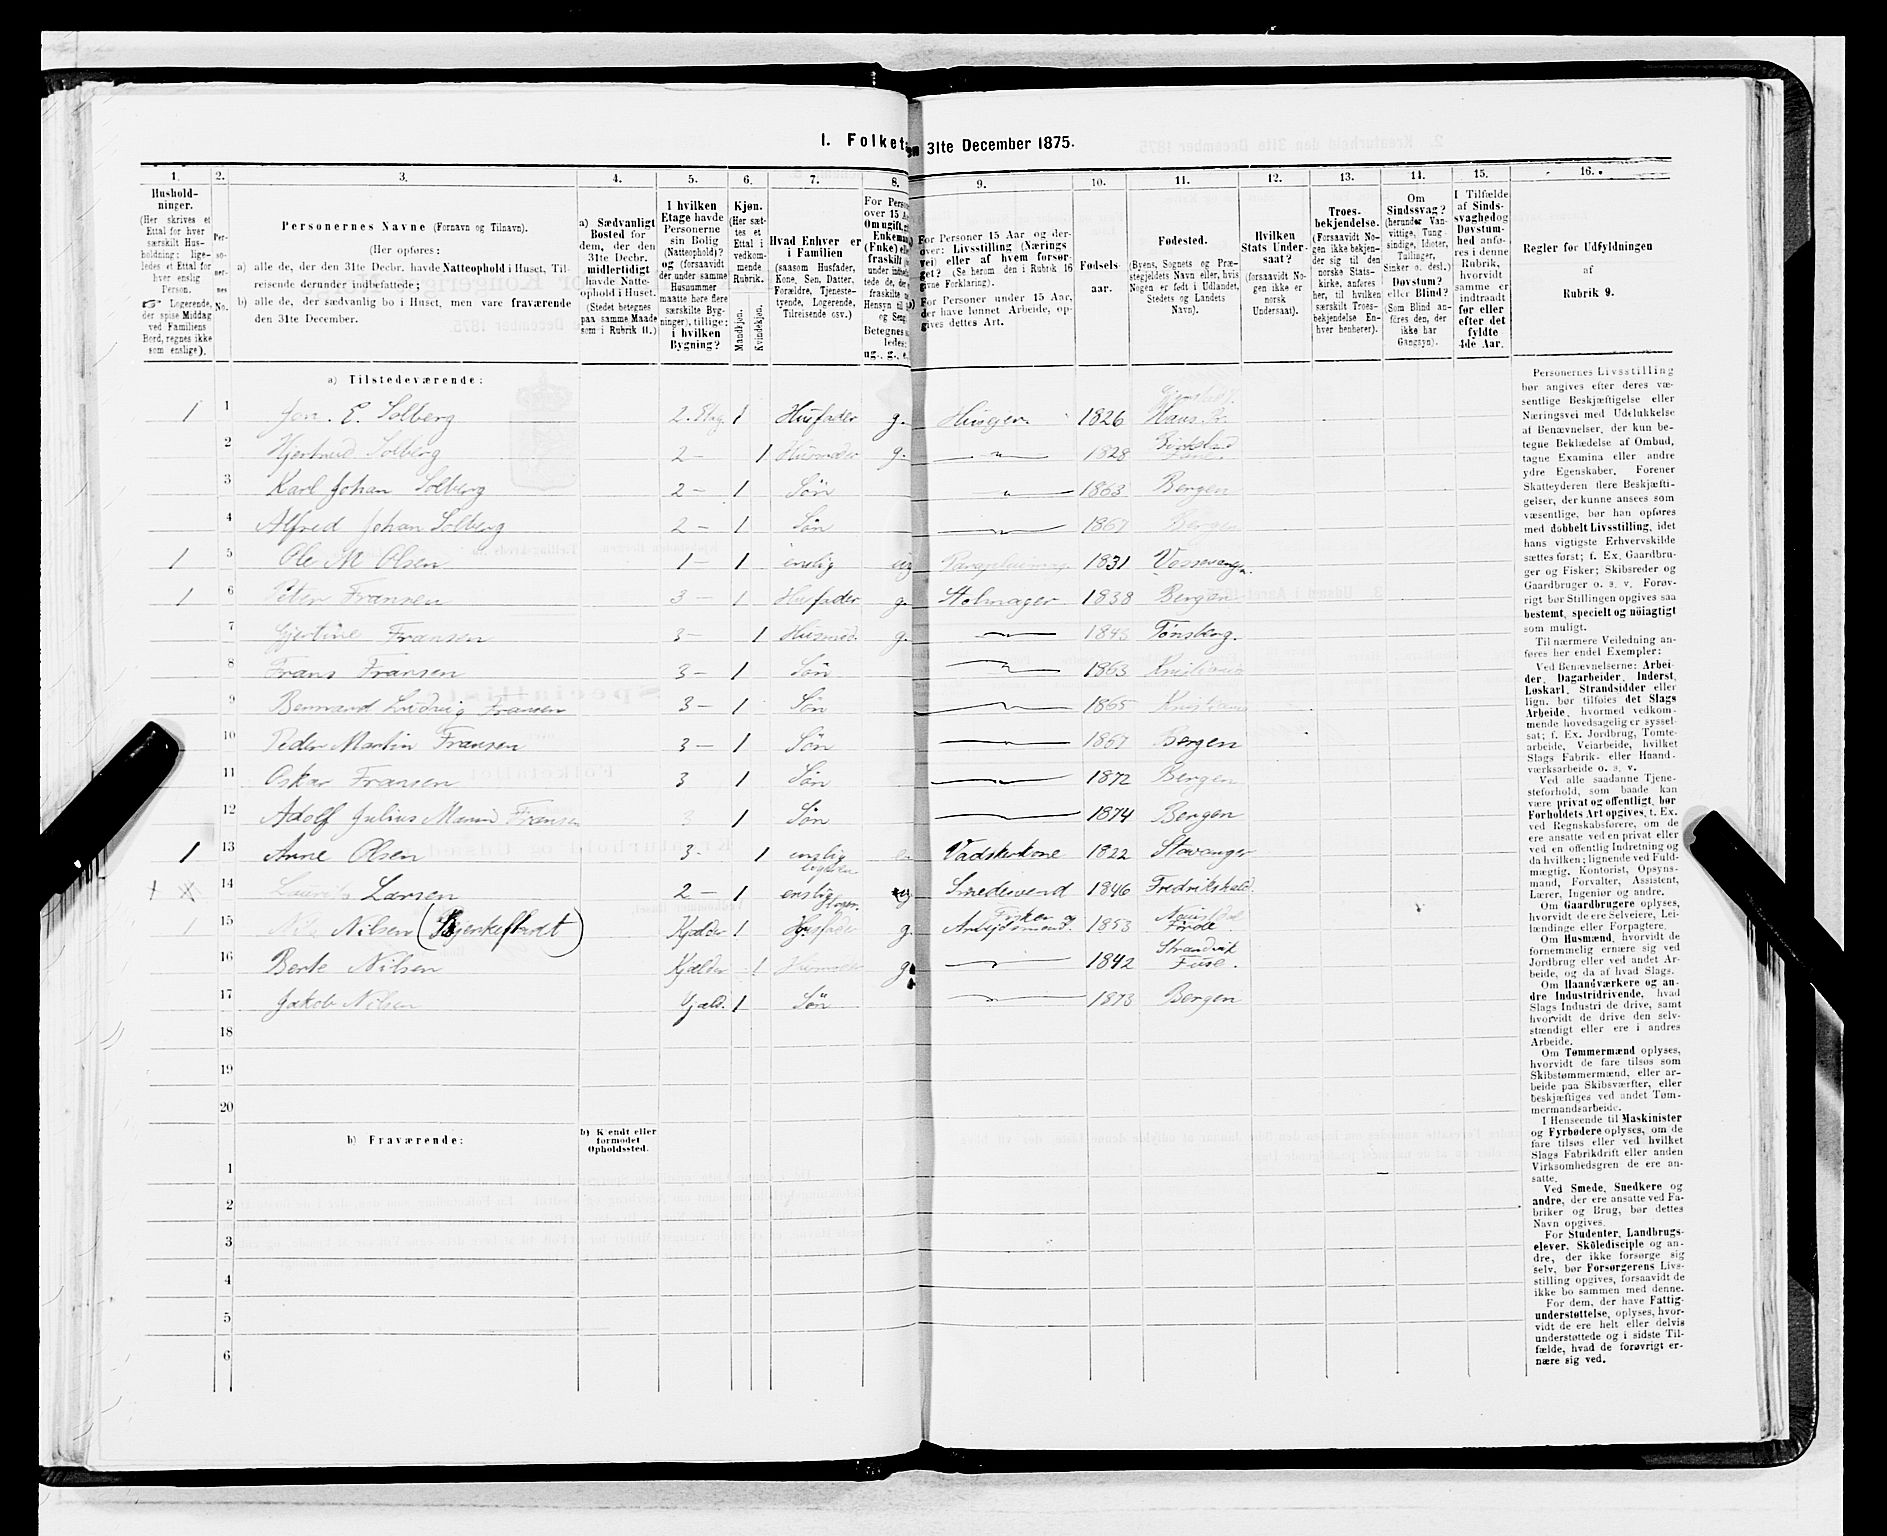 I. Folketæ
en 31te December 1875.
1. 2. 3. 4. 5. 6. 7. 8. 9. 10. 11. 12. 13. 14. 15. 16.
Hushold-
ninger.
(Her skrives et
Ettal for hver
særskilt Hus-
holdning: lige-
ledes et Ettal for
hver enslig
Person.
☞ Logerende,
der spise Middag
ved Familiens
Bord, regnes ikke
som enslige).
Per-
so-
ner-
nes
No.
Personernes Navne (Fornavn og Tilnavn).
(Her opføres:
a) alle de, der den 31te Decbr. havde Natteophold i Huset, Til-
reisende derunder indbefattede;
b) alle de, der sædvanlig bo i Huset, men vare fraværende
den 31te December.
a) Sædvanligt
Bosted for
dem, der den
31te Decbr.
midlertidigt
havde Natte-
ophold i Huset.
(Stedet betegnes
paa samme Maade
som i Rubrik 11.)
I hvilken
Etage havde
Personerne
sin Bolig
(Natteophold)?
og (forsaavidt
der under samme
Husnummer
maatte høre flere
særskilte Byg-
ninger), tillige:
i hvilken
Bygning?
Kjøn.
(Her sæt-
tes et
Ettal i
vedkom-
mende
Rubrik.
Mandkjøn.
Kvindekjøn.
Hvad Enhver er
i Familien
(saasom Husfader,
Kone, Søn, Datter,
Forældre, Tjeneste-
tyende, Logerende,
Tilreisende osv.)
For Perso
over 15 A
Om ugift, g
Enkeman
(Enke) el
fraskilt
Betegnes s
ledes:
ug., g., e.
For Personer 15 Aar og der-
over: Livsstilling (Nærings
vei) eller af hvem forsør-
get? (Se herom den i Rubrik 16
givne Forklaring).
For Personer under 15 Aar,
der have lønnet Arbeide, op-
gives dettes Art.
Fødsels-
aar.
Fødested.
(Byens, Sognets og Præ-
stegjeldets Navn eller, hvis
Nogen er født i Udlandet,
Stedets og Landets
Navn).
Hvilken
Stats Under-
saat?
(forsaavidt No-
gen ikke er
norsk
Undersaat).
Troes-
bekjendelse.
(Forsaavidt No-
gen ikke bekjen-
der sig til den
norske Stats-
kirke, anføres
her, til hvilken
særskilt Troes-
bekjendelse En-
hver henhører).
Om
Sindssvag?
(herunder Van-
vittige, Tung-
sindige, Idioter,
Tullinger,
Sinker o. desl.)
Døvstum?
eller Blind?
(Som Blind an-
føres den, der
ikke har
Gangsyn).
I Tilfælde
af Sinds-
svaghed og
Døvstum-
hed anfø-
res i denne
Rubrik,
hvorvidt
samme er
indtraadt
før eller
efter det
fyldte
4de Aar.
Regler for Udfyldningen
af
Rubrik 9.
a) Tilstedeværende:
1 1 Jon. E. Solberg 2. Etag. 1 Husfader g. 1826
2 Hjertrud Solberg 2 — 1 Husmoder g. — " — 1828 Birkeland
3 Karl Johan Solberg 2 — 1 Søn — " — 1863 Bergen
4 Alfred Johan Solberg 2 — 1 Søn — " — 1867 Bergen
1 5 Ole M Olsen 1 — 1 enslig ug 1831 Vossevangen
1 6 Peter Fransen 3 — 1 Husfader g. Stolmager 1838 Bergen
7 Gjertine Fransen 3 — 1 Husmod. g. — " — Tønsberg.
8 Frans Fransen 3 — 1 Søn — " — 1863 Kristiania
9 Bernand Ludvig Fransen 3 — 1 Søn — " — 1865 Kristiania
10 Peder Martin Fransen 3 — 1 Søn — " — 1867 Bergen
11 Oskar Fransen 3 1 Søn — " — 1872 Bergen
12 Adolf Julius Fransen 3 1 Søn — " — 1874 Bergen
1 13 Anne Olsen 3 - 1 enslig e. Vadskerkone 1822 Stavanger
14 Laurits Larsen 2 — 1 enslig ug Smedesvend 1846 Fredrikshald
logerer
1 15 Nils Nilsen (Bjerkeflardt) Kjælder 1 Husfader g. Fisker og Arbeidsmand 1853 Førde.
16 Berte Nilsen Kjælder 1 Husmoder g. — " — 1842 Strandvik Fuse.
17 Jakob Nilsen Kjæld. 1 Søn — " — 1873 Bergen
18
19
20
b) Fraværende:
b) Kjendt eller
formodet
Opholdssted.
1
2
3
4
5
6
Personernes Livsstilling
bør angives efter deres væ-
sentlige Beskjæftigelse eller
Næringsvei med Udelukkelse
af Benævnelser, der kun be-
tegne Beklædelse af Ombud,
tagne Examina eller andre
ydre Egenskaber. Forener
Skatteyderen flere Beskjæfti-
gelser, der kunne ansees som
væsentlige, bør han opføres
med dobbelt Livsstilling, idet
hans vigtigste Erhvervskilde
sættes først; f. Ex. Gaardbru-
ger og Fisker; Skibsreder og
Gaardbruger o. s. v. Forøv-
rigt bør Stillingen opgives saa
bestemt, specielt og nøiagtigt
som muligt.
Til nærmere Veiledning an-
føres her endel Exempler:
Ved Benævnelserne: Arbei-
der, Dagarbeider, Inderst,
Løskarl, Strandsidder eller
lign. bør tilføies det Slags
Arbeide, hvormed vedkom-
mende hovedsagelig er syssel-
sat; f. Ex. Jordbrug, Tomte-
arbeide, Veiarbeide, hvilket
Slags Fabrik- eller Haand-
værksarbeide o. s. v.
Ved alle saadanne Tjene-
steforhold, som baade kan
være privat og offentligt, bør
Forholdets Art opgives, t. Ex.
ved Regnskabsførere, om de
ere ansatte ved en privat eller
ved en offentlig Indretning og
da hvilken; lignende ved Fuld-
mægtig, Kontorist, Opsyns-
mand, Forvalter, Assistent,
Lærer, Ingeniør og andre.
Om Gaardbrugere oplyses,
hvorvidt de ere Selveiere, Lei-
lændinge eller Forpagtere.
Om Husmænd, hvorvidt de
fornemmelig ernære sig ved
Jordbrug eller ved andet Ar-
beide, og da af hvad Slags.
Om Haandværkere og an-
dre Industridrivende, hvad
Slags Industri de drive, samt
hvorvidt de drive den selv-
stændigt eller ere i andres
Arbeide.
Om Tømmermænd oplyses,
hvorvidt de fare tilsøs som
Skibstømmermænd, eller ar-
beide paa Skibsværfter, eller
beskjæftiges ved andet Tøm-
mermandsarbeide.
I Henseende til Maskinister
og Fyrbødere oplyses, om de
fare tilsøs eller ved hvilket
Slags Fabrikdrift eller anden
Virksomhedsgren de ere an-
satte.
Ved Smede, Snedkere og
andre, der ere ansatte ved Fa-
briker og Brug, bør dettes
Navn opgives.
For Studenter, Landbrugs-
elever, Skoledisciple og an-
dre, der ikke forsørge sig
selv, bør Forsørgerens Livs-
stilling opgives, forsaavidt de
ikke bo sammen med denne.
For dem, der have Fattig-
understøttelse, oplyses, hvor-
vidt de ere helt eller delvis
understøttede og i sidste Til-
fælde, hvad de forøvrigt er-
nære sig ved.